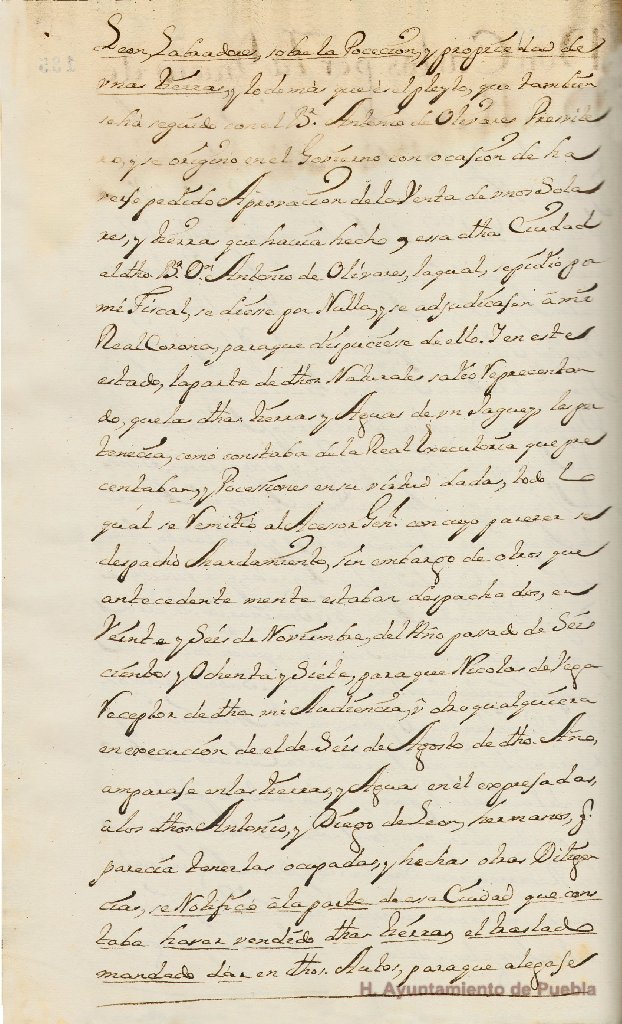 Leon, Labradores, sobre la Pocecion, y propriedad de
vnas tierras, y lo demàs que es el pleyto, que tambien
se hà seguido con el B.r Antonio de Olivares Presvite
ro, y se origino en el Govierno con ocasion de ha
verse pedido Aprovacion de la Venta de vnos Sola
res, y tierras que havia hecho essa dha Ciudad
al dho B.r D.n Antonio de Olivares, la qual, se pidio por
mi Fiscal, se diesse por Nulla, y se adjudicasen â mi
Real Corona, para que dispuciese de ello. Y en este
estado, la parte de dhos Naturales saliò Representan
do, que las dhas tierras y Aguas de vn Jaguey, les per
tenecia, como constaba de la Real Executoria que pre
centaban, y Pocessiones en su virtud dadas, todo lo
qual se Remitiò al Acesor Gen.l con cuyo parecer se
despachò Mandamiento, sin embargo de otros que
antecedente mente estaban despachados, en
Veinte y Seis de Noviembre, del Año pasado de Seis
cientos y Ochenta y Siete, para que Nicolas de Vega
Receptor de dha mi Audiencia, û otro qualquiera
en execucion de el de Seis de Agosto de dho. Año,
amparase en las tierras, y Aguas en èl expresadas,
â los dhos Antonio, y Diego de Leon, hermanos, q.e
parecia tenerlas ocupadas, y hechas otras Diligen
cias, se Notificò â la parte de esa Ciudad que cons
taba haver vendido dhas tierras, el traslado
mandado dar en dhos. Autos, para que alegase
H. Ayuntamiento de Puebla